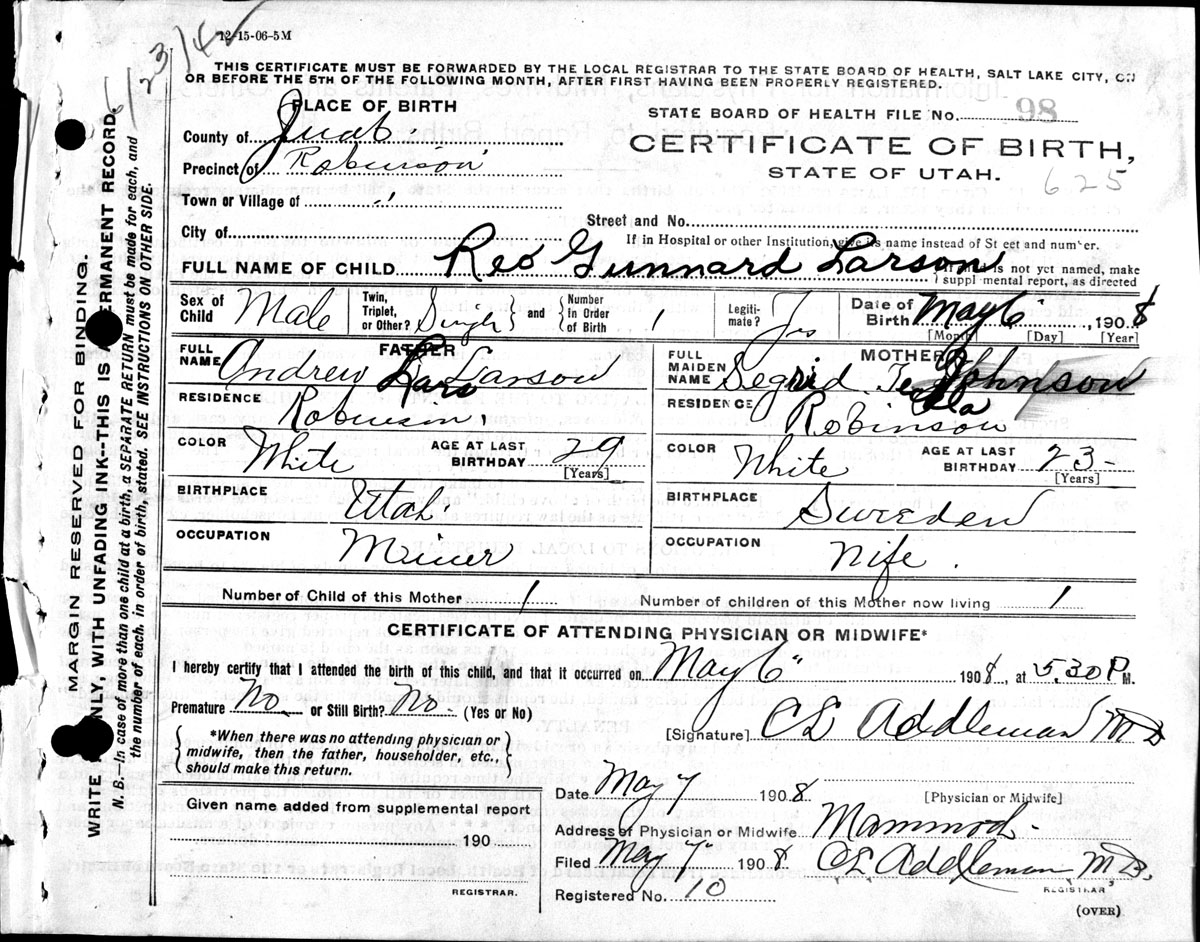 6/23/42
12-15-06-5M
THIS CERTIFICATE MUST BE FORWARDED BY THE LOCAL REGISTRAR TO THE STATE BOARD OF HEALTH, SALT LAKE CITY, ON
OR BEFORE THE 5TH OF THE FOLLOWING MONTH, AFTER FIRST HAVING BEEN PROPERLY REGISTERED.
PLACE OF BIRTH
County of Juab.
Precinct of Robinson
Town or Village of "
City of
STATE BOARD OF HEALTH FILE No. 98
CERTIFICATE OF BIRTH,
STATE OF UTAH.
625
Street and No.
If in Hospital or other Institution, give its name instead of St eet and number.
FULL NAME OF CHILD Reo Gunnard Larson
is not yet named, make
suppl mental report, as directed
Sex of Child Male
Twin, Triplet, or Other? Single } and { Number in Order of Birth 1
Legiti-mate? Yes
Date of Birth May 6, 1908
[Month] [Day] [Year]
FATHER
FULL NAME Andrew Lars Larson
RESIDENCE Robinson.
COLOR White AGE AT LAST BIRTHDAY 29
[Years]
BIRTHPLACE Utah.
OCCUPATION Miner
MOTHER
FULL MAIDEN NAME Segrid Johnson
RESIDENCE Robinson
COLOR White AGE AT LAST BIRTHDAY 23-
[Years]
BIRTHPLACE Sweden
OCCUPATION Wife.
Number of Child of this Mother 1 Number of children of this Mother now living 1
CERTIFICATE OF ATTENDING PHYSICIAN OR MIDWIFE*
I hereby certify that I attended the birth of this child, and that it occurred on May 6" 1908, at 5.30 P M.
Premature No or Still Birth? No. (Yes or No)
*When there was no attending physician or
midwife, then the father, householder, etc.,
should make this return.
[Signature] CE Addleman MD
[Physician or Midwife]
Given name added from supplemental report
190
REGISTRAR.
Date May 7 1908
Address of Physician or Midwife Mammoth.
Filed May 7" 1908 CE Addleman M.D.
REGISTRAR
Registered No. 10
(OVER)
MARGIN RESERVED FOR BINDING.
WRITE ONLY, WITH UNFADING INK--THIS IS A PERMANENT RECORD.
N. B.—In case of more than one child at a birth, a SEPARATE RETURN must be made for each, and
the number of each, in order of birth, stated. SEE INSTRUCTIONS ON OTHER SIDE.